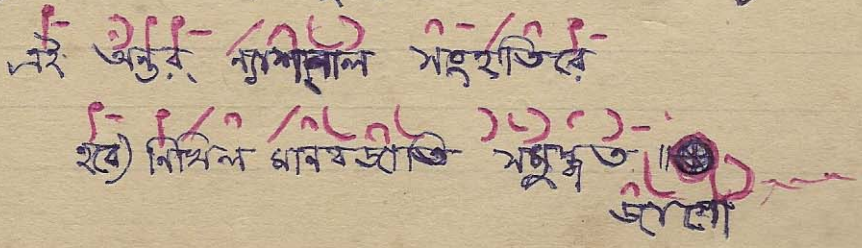 এই অন্তর্ ন্যাশনাল সংহতিরে
হবে) নিখিল মানবজাতি সমুদ্ধত ॥
জাগো